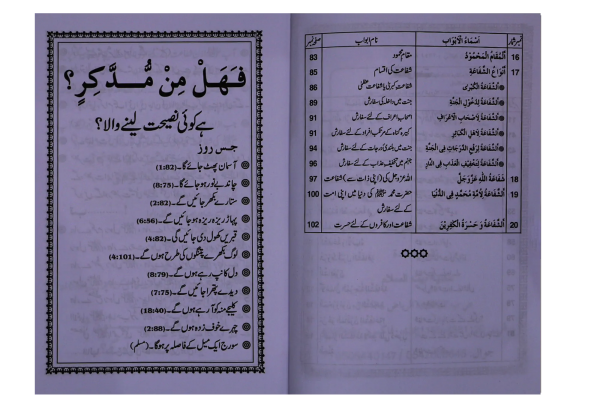 نمبر شمار اَسْمَاءُ الْاَبْوَاب نام ابواب صفحہ نمبر
16 اَلْمَقَامُ الْمَحْمُوْدُ مقام محمود 83
17 اَنْوَاعُ الشَّفَاعَةِ شفاعت کی اقسام 85
اَلشَّفَاعَةُ الْكُبْرٰى شفاعت کبریٰ یا شفاعت عظمیٰ 86
اَلشَّفَاعَةُ لِدُخُوْلِ الْجَنَّةِ جنت میں داخلہ کی سفارش 89
اَلشَّفَاعَةُ لِاَصْحَابِ الْاَعْرَافِ اصحاب اعراف کے لئے سفارش 91
اَلشَّفَاعَةُ لِاَهْلِ الْكَبَائِرِ کبیرہ گناہ کے مرتکب افراد کے لئے سفارش 91
اَلشَّفَاعَةُ لِرَفْعِ الدَّرَجَاتِ فِى الْجَنَّةِ جنت میں بلندی درجات کے لئے سفارش 94
اَلشَّفَاعَةُ لِتَخْفِيْفِ الْعَذَابِ فِى النَّارِ جہنم میں تخفیف عذاب کے لئے سفارش 96
18 شَفَاعَةُ اللّٰهِ عَزَّوَجَلَّ اللہ عزوجل کی (اپنی ذات سے) شفاعت 97
19 اَلشَّفَاعَةُ لِاُمَّةِ مُحَمَّدٍ فِى الدُّنْيَا حضرت محمد ﷺ کی دنیا میں اپنی امت 100
کے لئے سفارش
20 اَلشَّفَاعَةُ وَ حَسْرَةُ الْكٰفِرِيْنَ شفاعت اور کافروں کے لئے حسرت 102
فَهَلْ مِنْ مُّدَّكِرٍ؟
ہے کوئی نصیحت لینے والا؟
جس روز
آسمان پھٹ جائے گا۔ (1:82)
چاند بے نور ہو جائے گا۔ (8:75)
ستارے بکھر جائیں گے۔ (2:82)
پہاڑ ریزہ ریزہ ہو جائیں گے۔ (6:56)
قبریں کھول دی جائیں گی۔ (4:82)
لوگ بکھرے پتنگوں کی طرح ہوں گے۔ (4:101)
دل کانپ رہے ہوں گے۔ (8:79)
دیدے پتھرا جائیں گے۔ (7:75)
کلیجے منہ کو آ رہے ہوں گے۔ (18:40)
چہرے خوف زدہ ہوں گے۔ (2:88)
سورج ایک میل کے فاصلہ پر ہوگا۔ (مسلم)